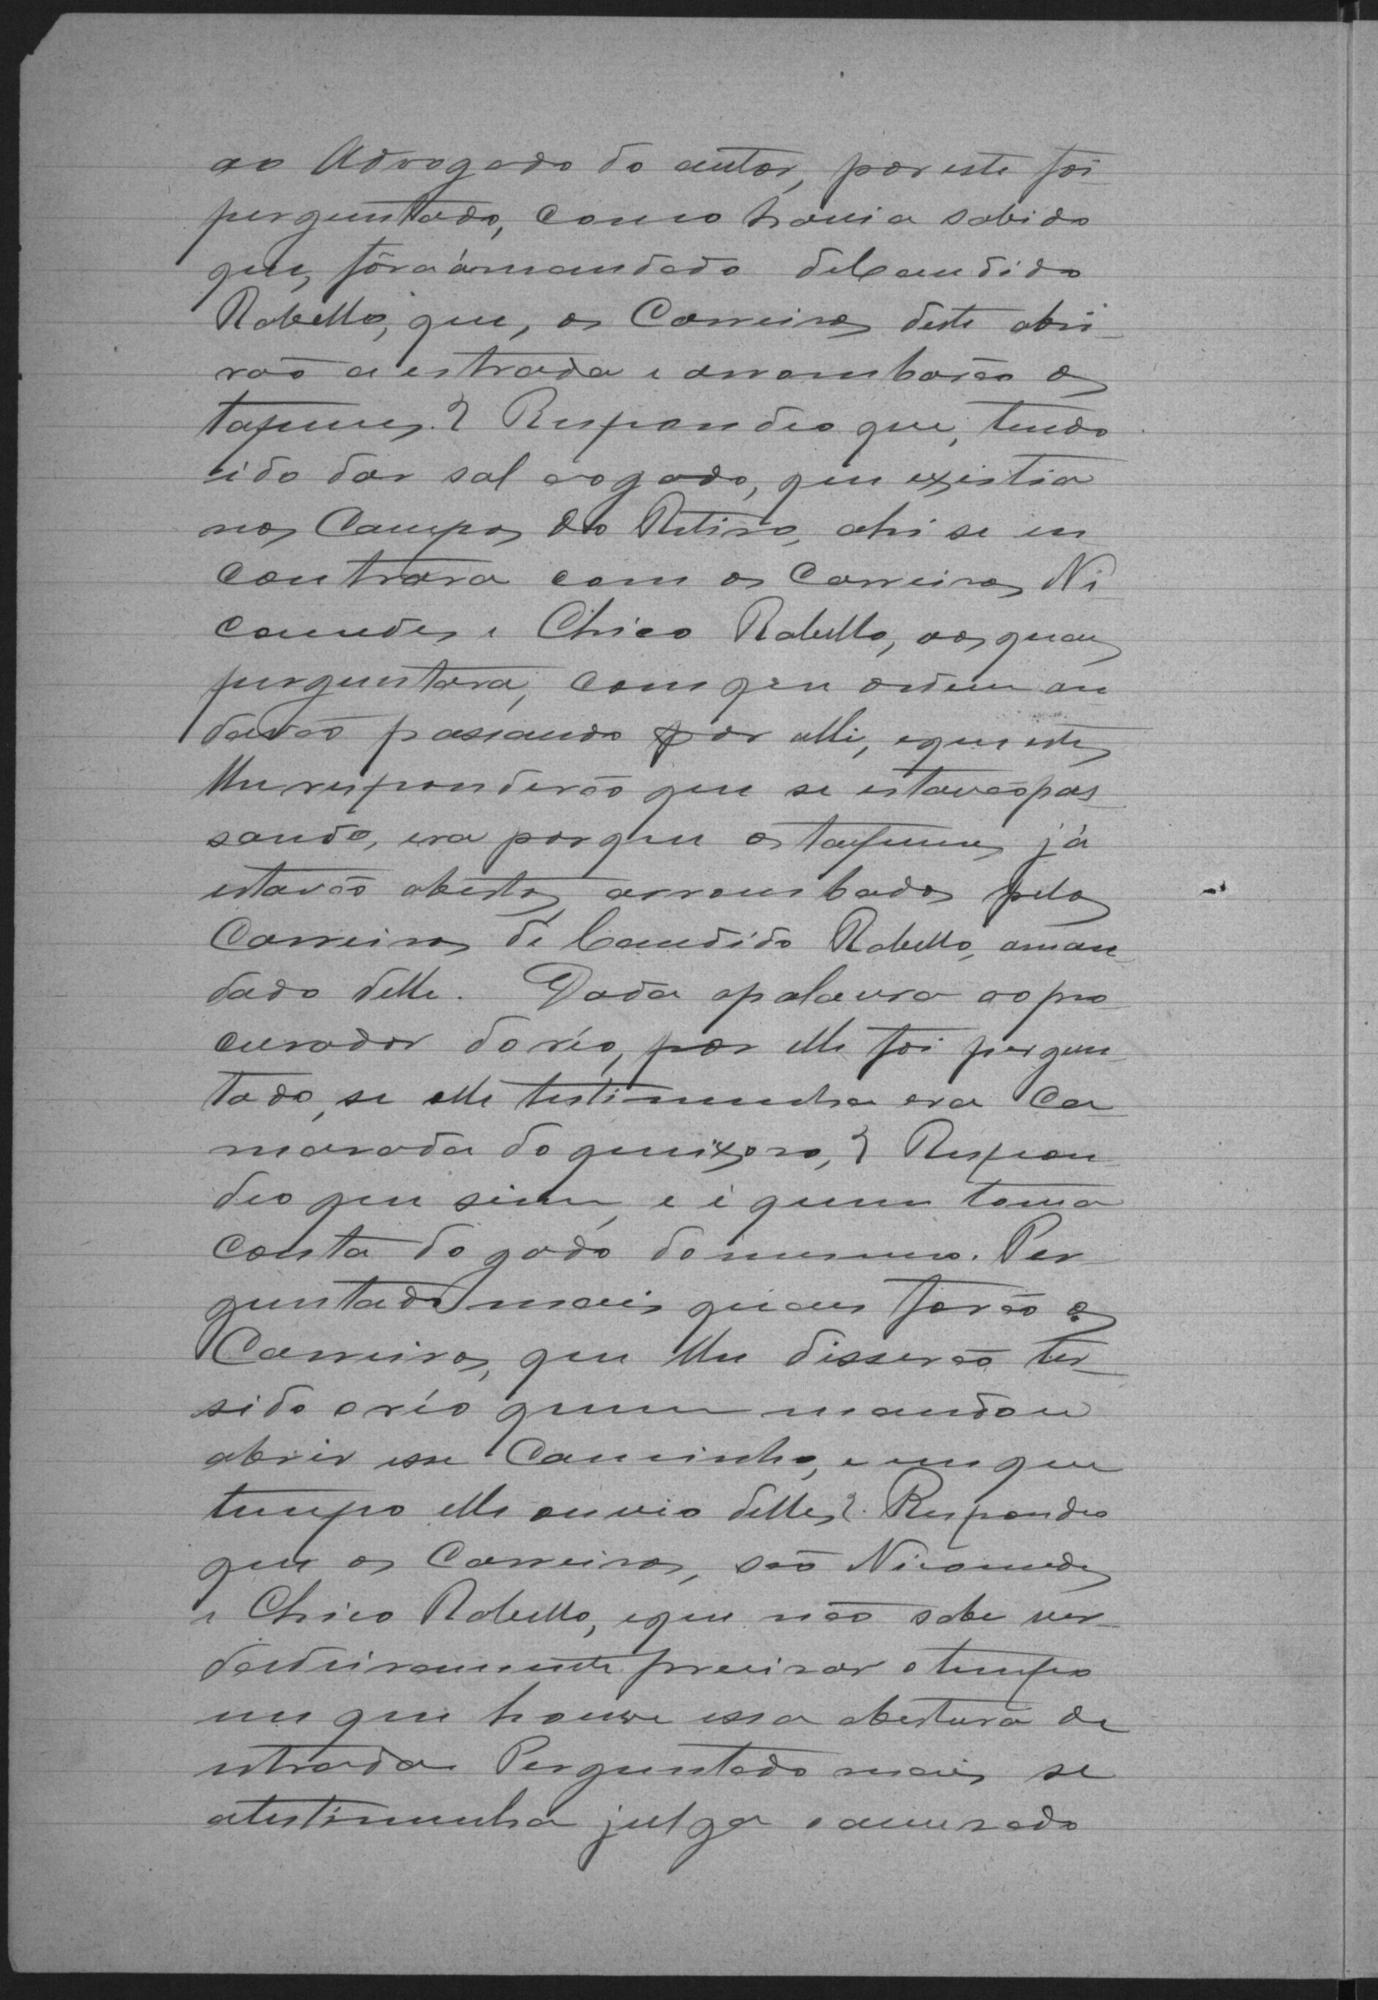 ao Advogado do autor, por este foi
perguntado, como havia sabido
que, fôra á mandado de Candido
Rabello, que, os Carreiros deste abri-
rão a estrada e arrombarão os
tapumes? Respondeo que, tendo
ido dar sal ao gado, que existia
nos Campos do Retiro, ahi se en
contrara com os Carreiros Ni-
comedes e Chico Rabello, aos quaes
perguntara, com que ordem an
davão passando por alli, e que estes
lhe responderão que se estavão pas-
sando, era porque os tapumes já
estavão abertos, arrombados pelos
Carreiros de Candido Rabello, a man-
dado delle. Dada a palavra ao pro
curador do réo, por elle foi pergun-
tado, se elle testimunha era Ca
marada do queixoso,? Respon
deo que sim, e é quem toma
conta do gado do mesmo. Per-
guntado mais quaes forão os
Carreiros, que lhe disserão ter-
sido o réo quem mandou
abrir esse Caminho, e em que
tempo elle ouvio delles?. Respondeo
que os Carreiros, são Nicomedes
e Chico Rabello, e que não sabe ver-
dadeiramente precisar o tempo
em que houve essa abertura de
estrada Perguntado mais se
a testimunha julga o accusado